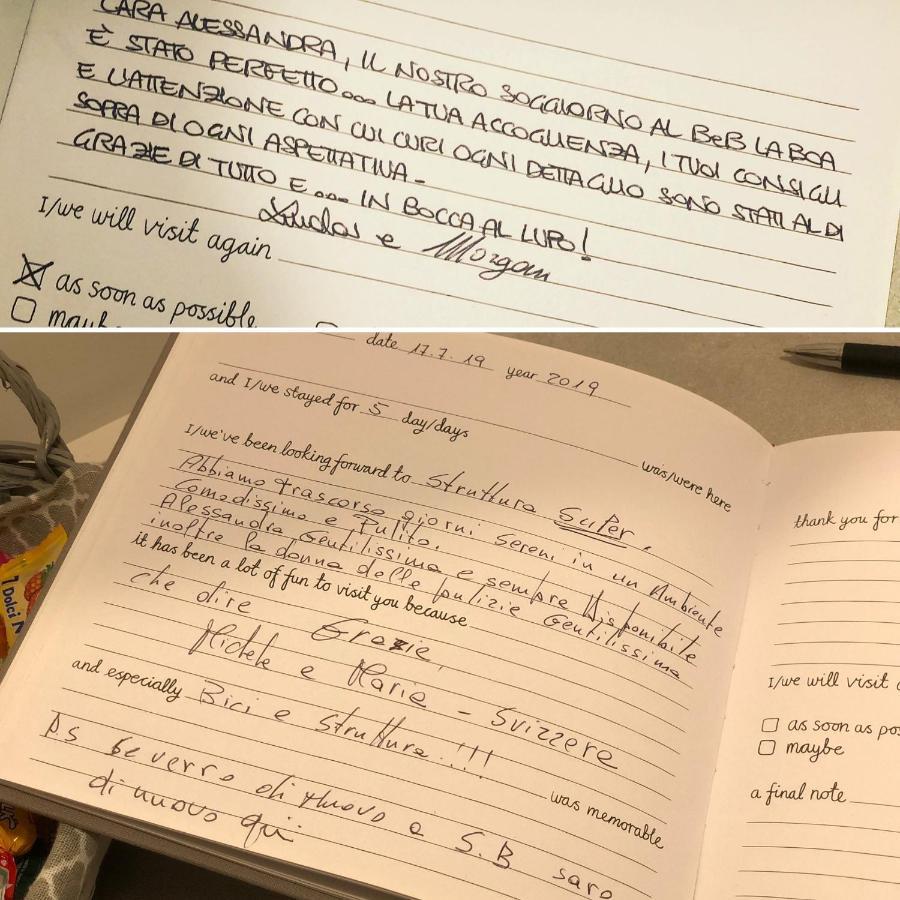 CARA ALESSANDRA, IL NOSTRO SOGGIORNO AL BeB LA BOA
È STATO PERFETTO... LA TUA ACCOGLIENZA, I TUOI CONSIGLI
E L'ATTENZIONE CON CUI CURI OGNI DETTAGLIO SONO STATI AL DI
SOPRA DI OGNI ASPETTATIVA.
GRAZIE DI TUTTO E... IN BOCCA AL LUPO!
e Morgan
I/we will visit again
as soon as possible
maybe
date 17.7.19 year 2019
and I/we stayed for 5 day/days
was/were here
I/we've been looking forward to Struttura Super.
Abbiamo trascorso giorni sereni in un Ambiente
Comodissimo e Pulito.
Alessandra Gentilissima e sempre Disponibile
inoltre la donna delle pulizie Gentilissima
it has been a lot of fun to visit you because
che dire
Grazie,
Michele e Maria - Svizzera
and especially Bici e struttura!!!
was memorable
Ps se verrò di nuovo a S.B sarò
di nuovo qui
thank you for
I/we will visit
as soon as pos
maybe
a final note
7 Dolci N